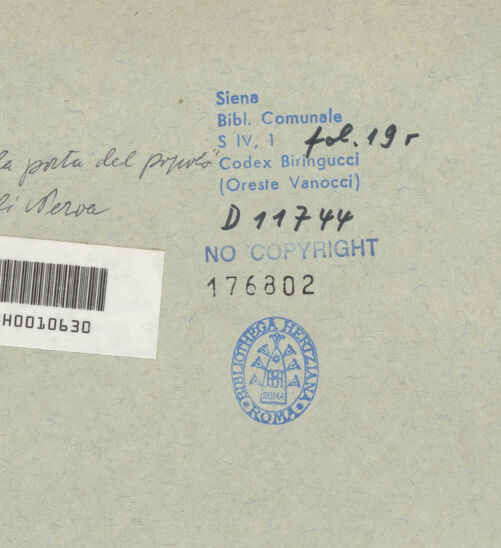 Siena
Bibl. Comunale
S IV, 1 fol. 19 r
la porta del popolo" Codex Biringucci
(Oreste Vanocci)
di Nerva
D 11744
NO COPYRIGHT
176802
H0010630
BIBLIOTHECA HERTZIANA
ROMA
* ROMA *